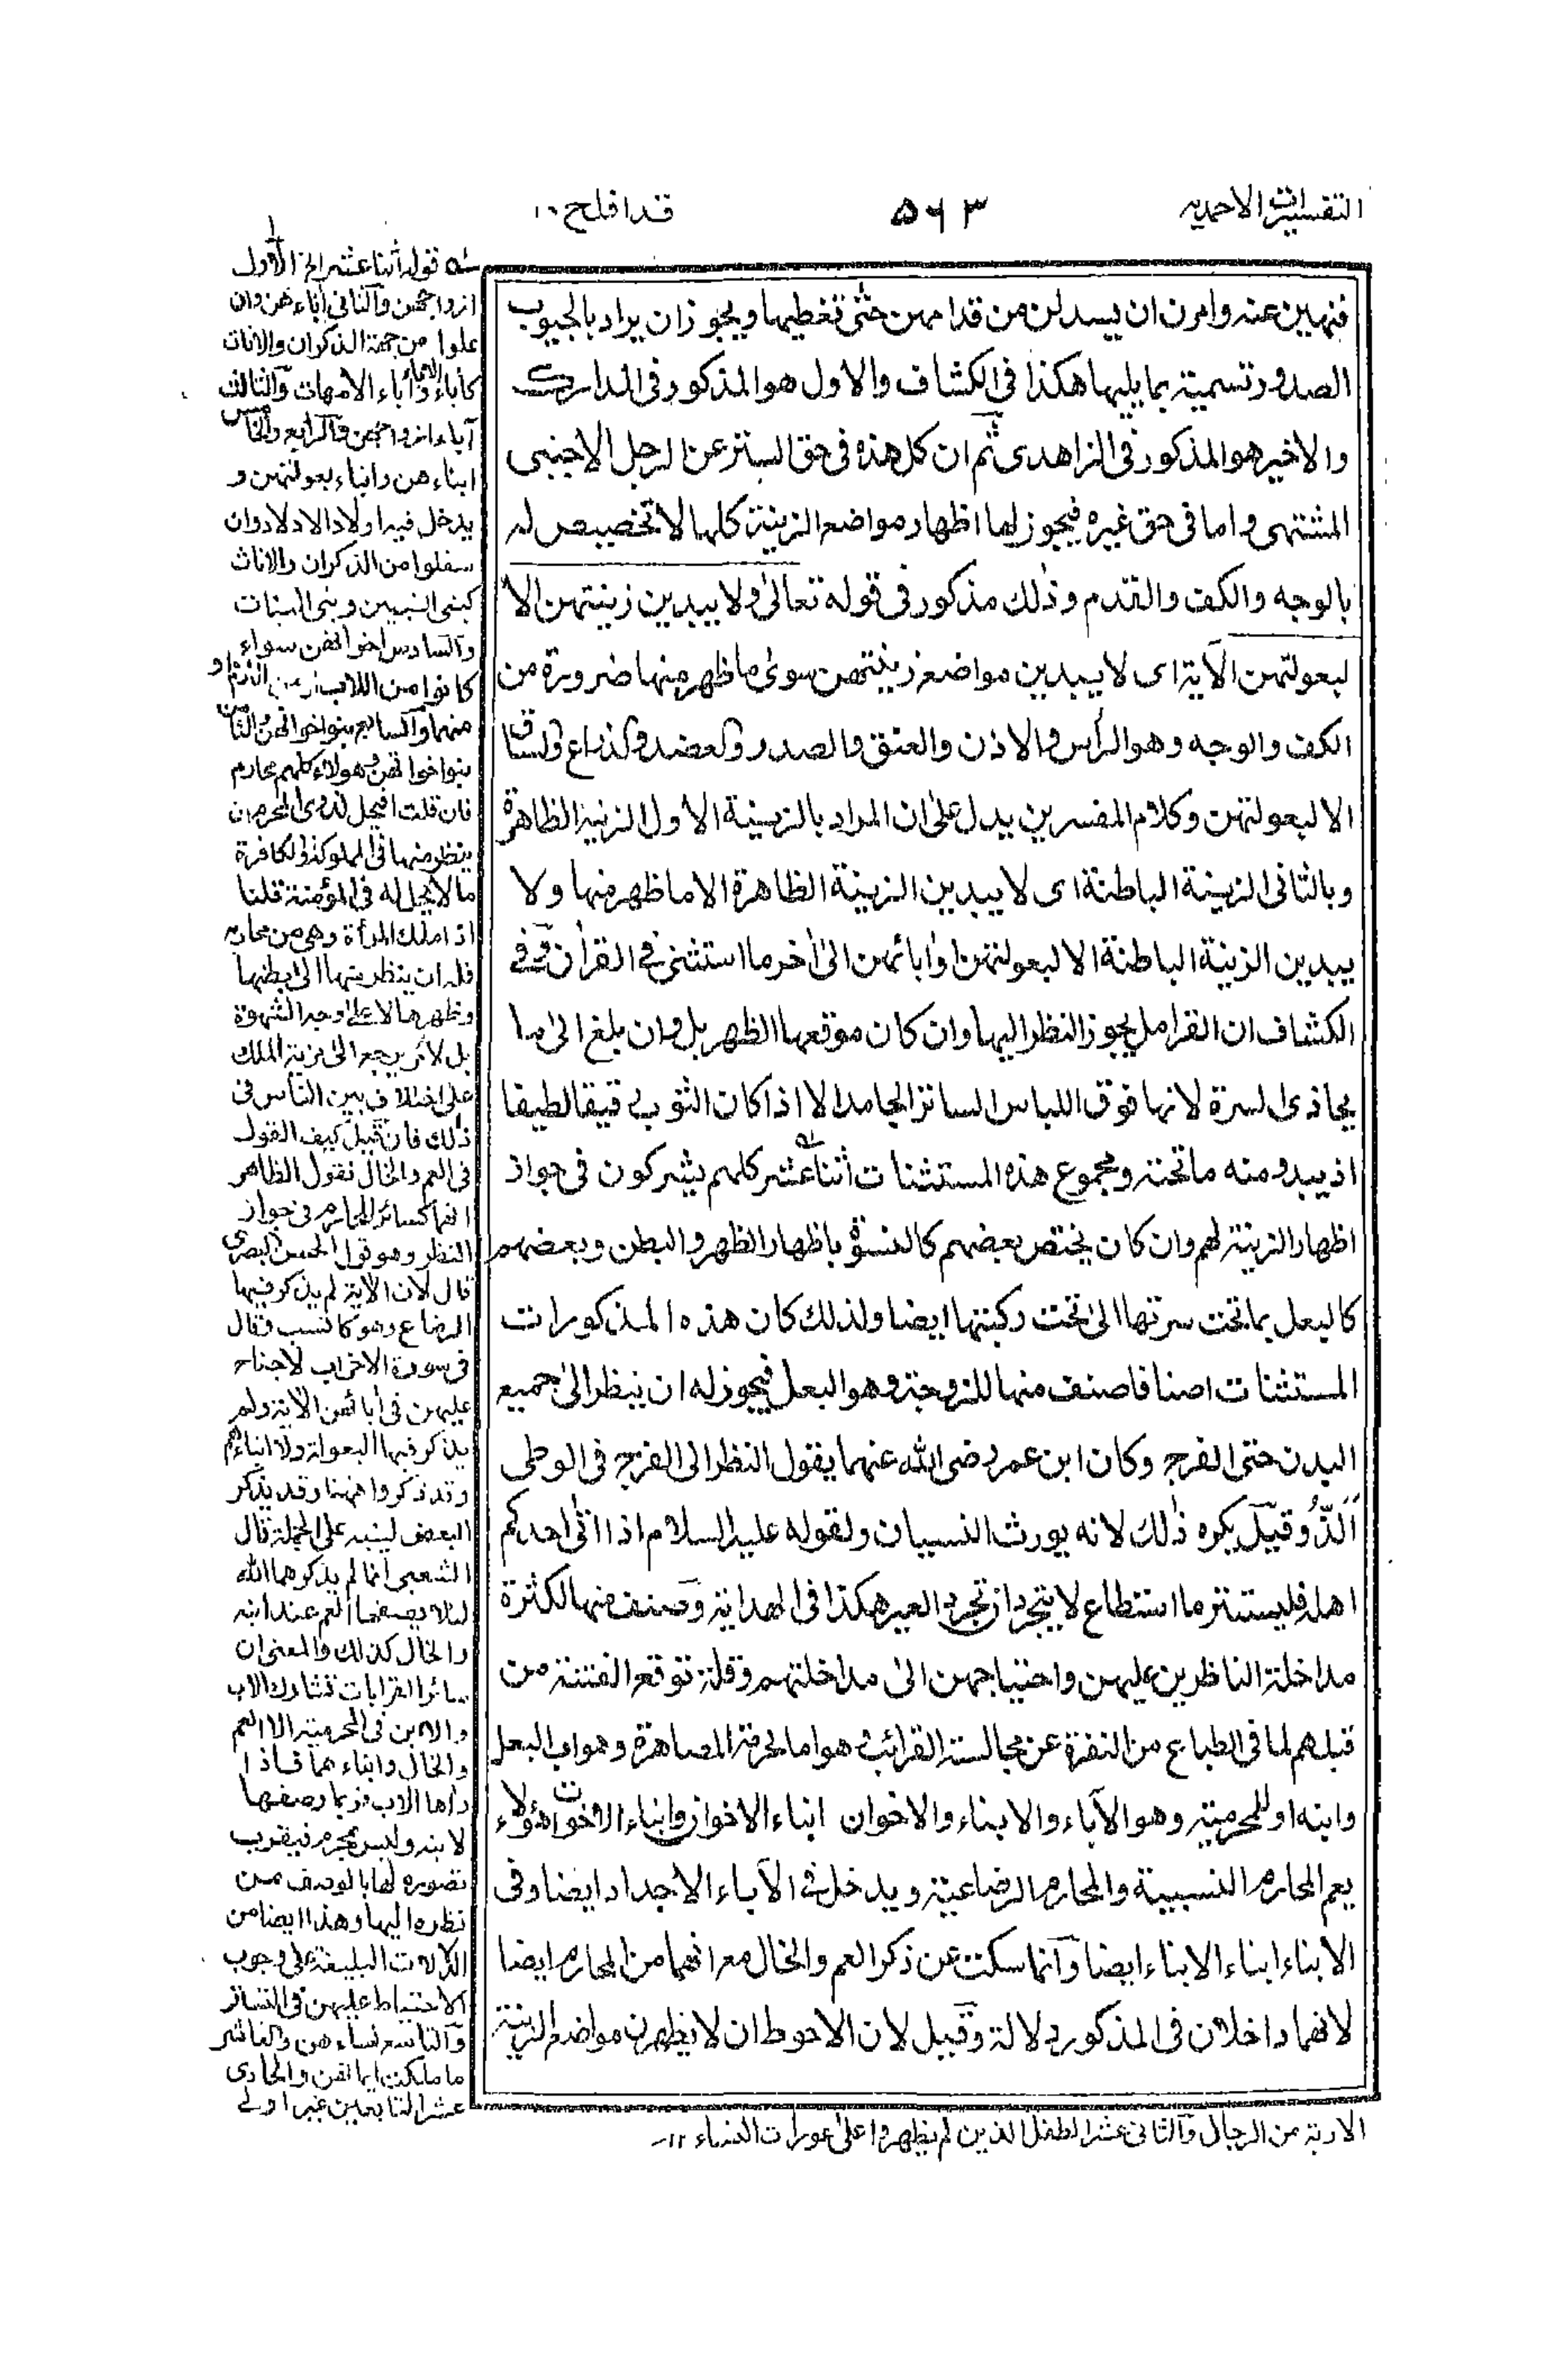 التفسيرات الاحمديه
۵۶۳
قد افلح ۱۰
فنهين عنه وامرن ان يسدلن من قدامهن حتى تغطيها ويجوز ان يراد بالجيوب
الصدور تسمية بما يليها هكذا فى الكشاف والاول هو المذكور فى المدارك
والاخير هو المذكور فى الزاهدى ثم ان كل هذه فى حق الستر عن الرجل الاجنبى
المشتهى واما فى حق غيره فيجوز لها اظهار مواضع الزينة كلها لا تخصيص له
بالوجه والكف والقدم وذلك مذكور فى قوله تعالى ولا يبدين زينتهن الا
لبعولتهن الآية اى لا يبدين مواضع زينتهن سوى ما ظهر منها ضرورة من
الكف والوجه وهو الرأس والاذن والعنق والصدر والعضد والذراع والساق
الا لبعولتهن وكلام المفسرين يدل على ان المراد بالزينة الاول الزينة الظاهرة
وبالثانى الزينة الباطنة اى لا يبدين الزينة الظاهرة الا ما ظهر منها ولا
يبدين الزينة الباطنة الا لبعولتهن او ابائهن الى اخر ما استثنى فى القرآن وفى
الكشاف ان القرامل يجوز النظر اليها وان كان موقعها الظهر بل وان بلغ الى ما
يحاذى السرة لانها فوق اللباس الساتر الجامد الا اذا كان الثوب رقيقا لطيفا
اذ يبدو منه ما تحته ومجموع هذه المستثنات اثنا عشر كلهم يشركون فى جواز
اظهار الزينة لهم وان كان يختص بعضهم كالنسوة باظهار الظهر والبطن وبعضهم
كالبعل بما تحت سرتها الى تحت ركبتها ايضا ولذلك كان هذه المذكورات
المستثنات اصنافا صنف منها للزوجية وهو البعل فيجوز له ان ينظر الى جميع
البدن حتى الفرج وكان ابن عمر رضى الله عنهما يقول النظر الى الفرج فى الوطى
الذ وقيل يكره ذلك لانه يورث النسيان ولقوله عليه السلام اذا اتى احدكم
اهله فليستتر ما استطاع لا يتجردان تجرد العير هكذا فى الهداية وصنف منها لكثرة
مداخلة الناظرين عليهن واحتياجهن الى مداخلتهم وقلة توقع الفتنة من
قبلهم لما فى الطباع من النفرة عن مجالسة القرائب وهو اما لحرمة المصاهرة وهو اب البعل
وابنه او للمحرمية وهو الآباء والابناء والاخوان ابناء الاخوان وابناء الاخوات وهؤلاء
يعم المحارم النسبية والمحارم الرضاعية ويدخل فى الآباء الاجداد ايضا وفى
الابناء ابناء الابناء ايضا وانما سكت عن ذكر العم والخال مع انهما من المحارم ايضا
لانهما داخلان فى المذكور دلالة وقيل لان الاحوط ان لا يظهرن مواضع الزينة
له قوله اثنا عشر الخ الاول
ازواجهن والثانى اباءهن وان
علوا من جهة الذكران والاناث
كاباء الاباء وآباء الامهات والثالث
آباء ازواجهن والرابع والخامس
ابناءهن وابناء بعولتهن و
يدخل فيه اولاد الاولاد وان
سفلوا من الذكران والاناث
كبنى البنين وبنى البنات
والسادس اخوانهن سواء
كانوا من الاب او من الام او
منهما والسابع بنو اخوانهن والثامن
بنو اخواتهن وهؤلاء كلهم محارم
فان قلت افيحل لذوى المحرم ان
ينظر منها فى المملوكة والكافرة
ما لا يحل له فى المؤمنة قلنا
اذا ملك المرأة وهى من محارمه
فله ان ينظر منها الى بطنها
وظهرها لا على وجه الشهوة
بل لامر يرجع الى مزية الملك
على اختلاف بين الناس فى
ذلك فان قيل كيف القول
فى العم والخال نقول الظاهر
انهما كسائر المحارم فى جواز
النظر وهو قول الحسن البصرى
قال لان الآية لم يذكر فيها
الرضاع وهو كالنسب وقال
فى سورة الاحزاب لا جناح
عليهن فى آبائهن الآية ولم
يذكر فيها البعولة ولا ابناءهم
وقد ذكروا ههنا وقد يذكر
البعض لينبه على الجملة قال
الشعبى انما لم يذكرهما الله
لئلا يصفها العم عند ابنه
والخال كذلك والمعنى ان
سائر القرابات تشارك الاب
والابن فى المحرمية الا العم
والخال وابناءهما فاذا
راها الاب فربما وصفها
لابنه وليس بمحرم فيقرب
تصوره لها بالوصف من
نظره اليها وهذا ايضا من
الدلالات البليغة على وجوب
الاحتياط عليهن فى التستر
والتاسع نساءهن والعاشر
ما ملكت ايمانهن والحادى
عشر التابعين غير اولى
الاربة من الرجال والثانى عشر الطفل الذين لم يظهروا على عورات النساء ۱۲